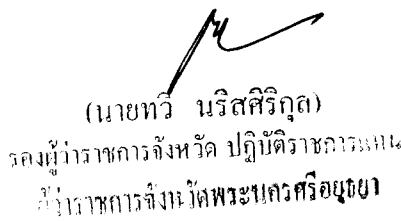 (นายทวี นริสศิริกุล)
รองผู้ว่าราชการจังหวัด ปฏิบัติราชการแทน
ผู้ว่าราชการจังหวัดพระนครศรีอยุธยา